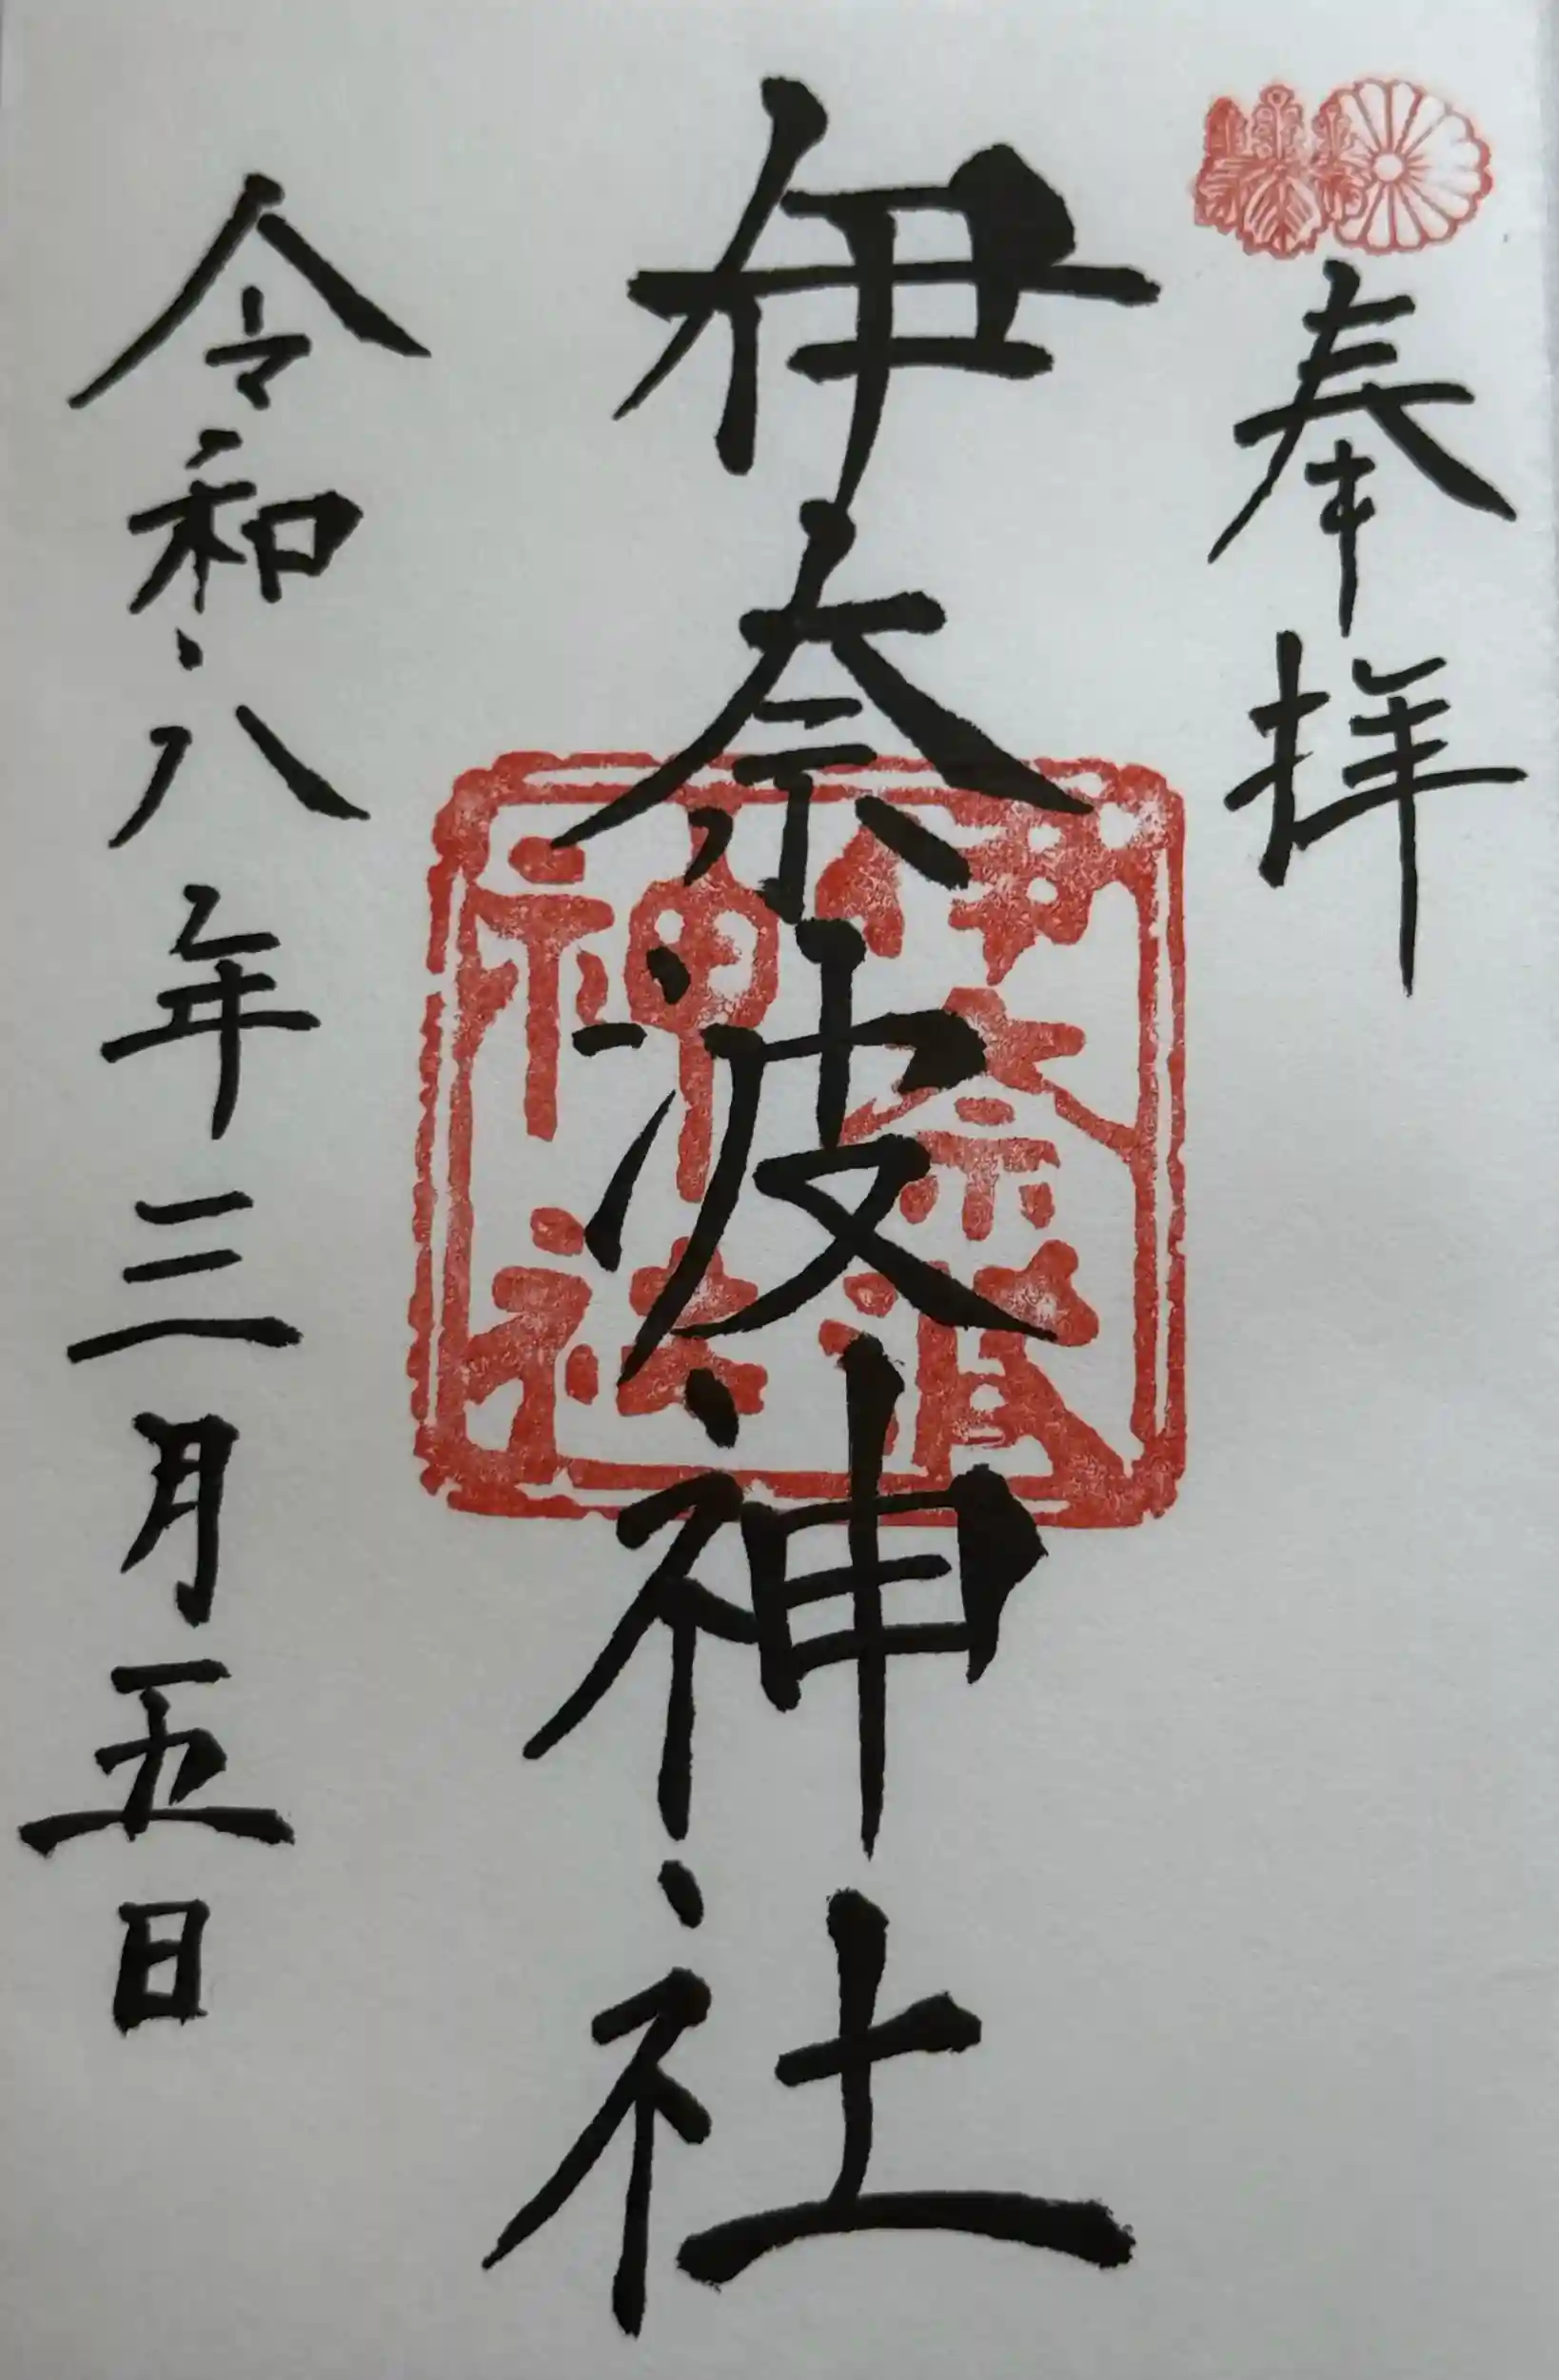 奉拝
伊奈波神社
伊奈波
神社
令和八年三月五日